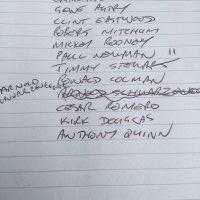 GENE AUTRY
CLINT EASTWOOD
ROBERT MITCHUM
MICKEY ROONEY
PAUL NEWMAN "
JIMMY STEWART
RONALD COLMAN
ARNOLD
SCHWARZENEGGER
CESAR ROMERO
KIRK DOUGLAS
ANTHONY QUINN